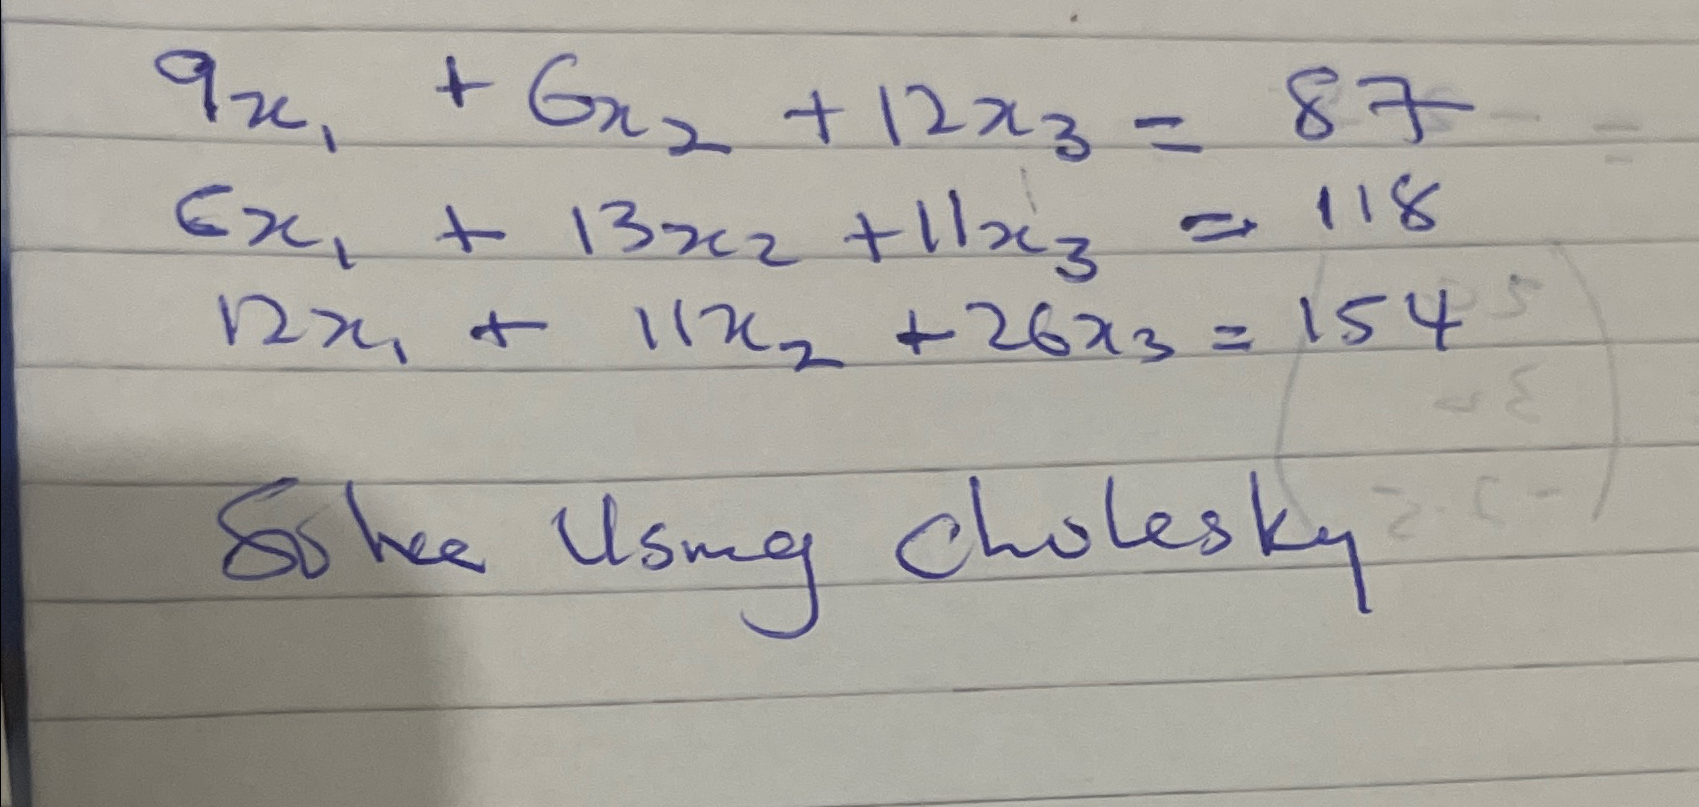 9x₁ + 6x₂ + 12x₃ = 87
6x₁ + 13x₂ + 11x₃ = 118
12x₁ + 11x₂ + 26x₃ = 154
Solve Using Cholesky